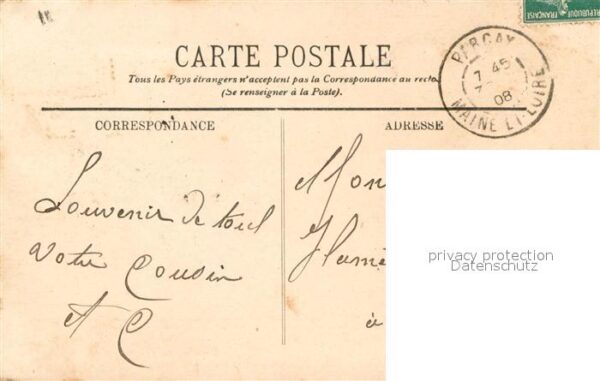 RÉPUBLIQUE FRANÇAISE
CARTE POSTALE
Tous les Pays étrangers n'acceptent pas la Correspondance au recto.
(Se renseigner à la Poste).
PERCAY
7 45
7
08
MAINE ET-LOIRE
CORRESPONDANCE
ADRESSE
Souvenir de tout
Votre Cousin
et C
Mon
à
privacy protection
Datenschutz